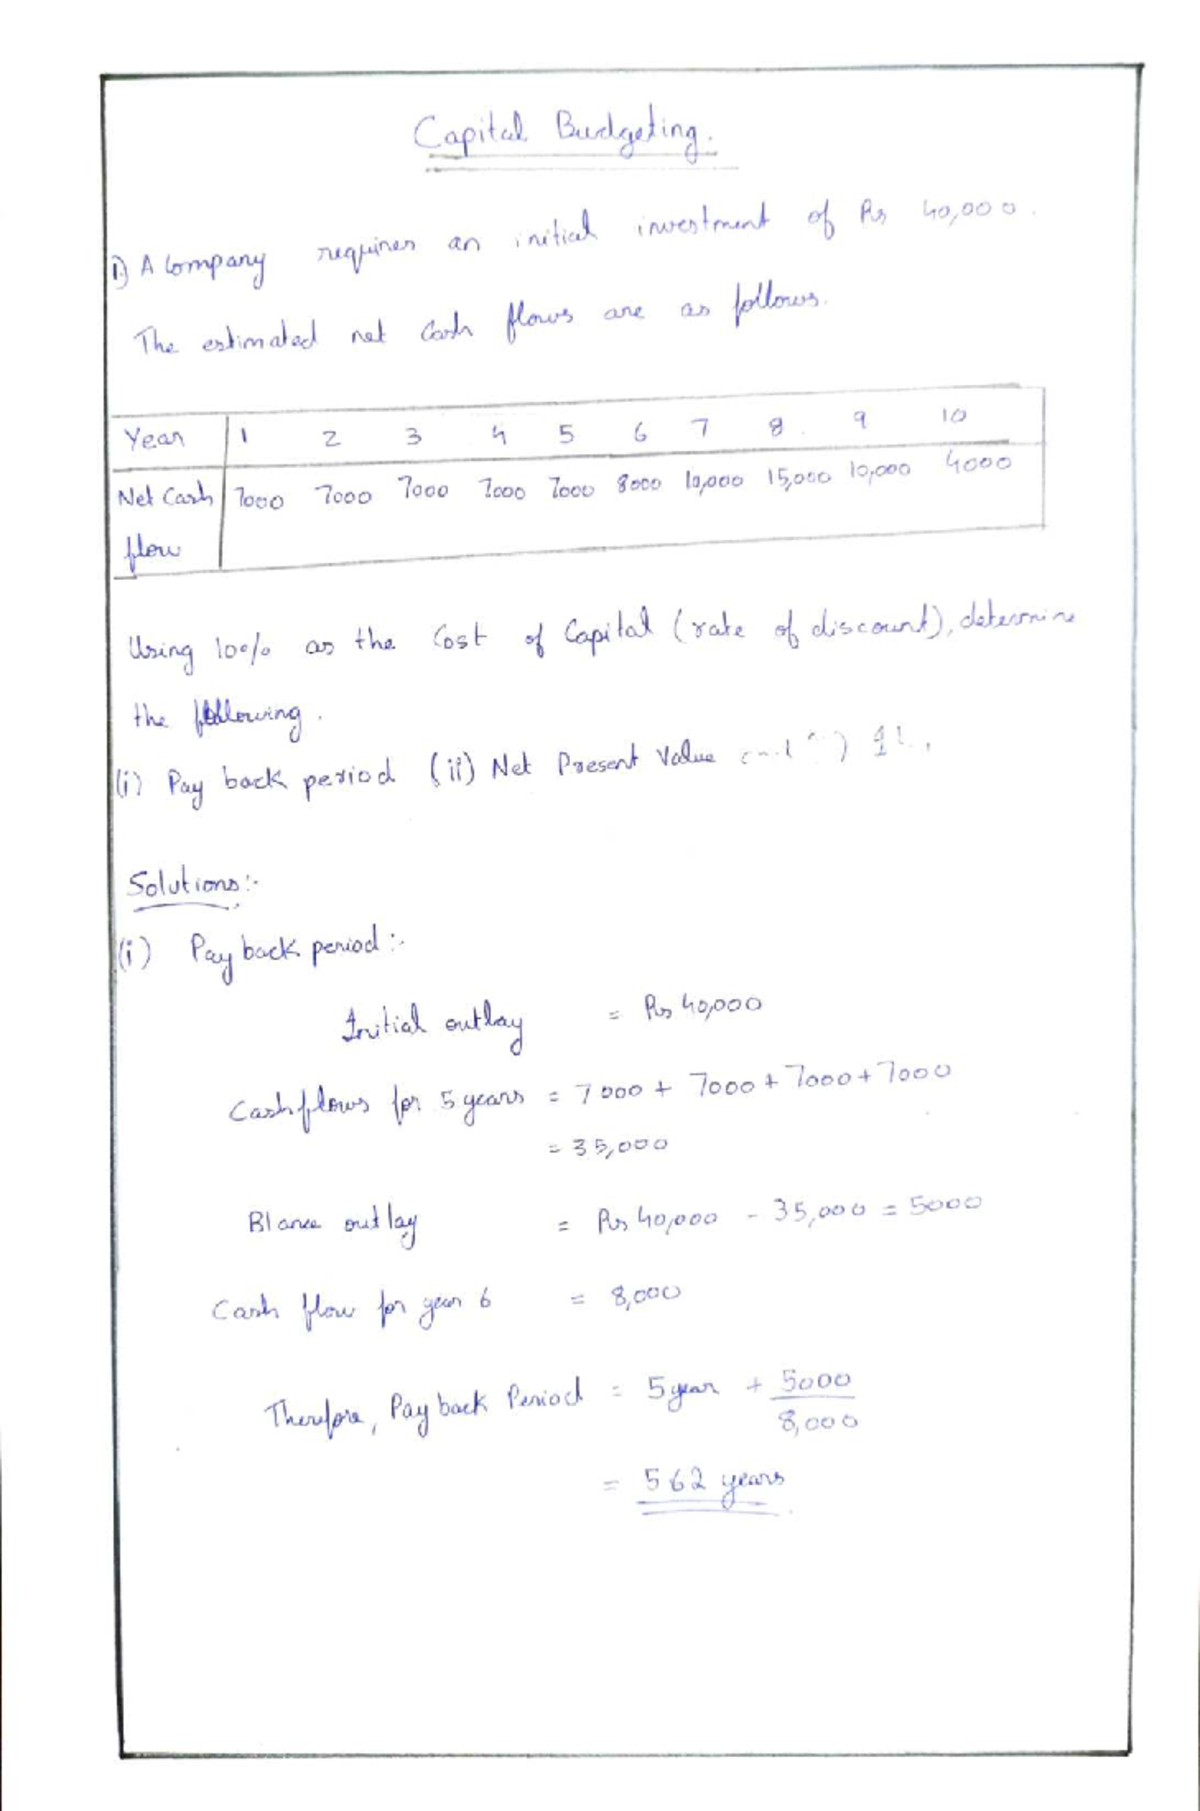 Capital Budgeting.
1.) A Company requires an initial investment of Rs 40,000.
The estimated net cash flows are as follows.
Year 1 2 3 4 5 6 7 8. 9 10
Net Cash 7000 7000 7000 7000 7000 8000 10,000 15,000 10,000 4000
flow
Using 10% as the Cost of Capital (rate of discount), determine
the following.
(i) Pay back period (ii) Net Present Value
Solutions:-
(i) Pay back period :-
Initial outlay = Rs 40,000
Cash flows for 5 years = 7000 + 7000 + 7000 + 7000
= 35,000
Blance outlay = Rs 40,000 - 35,000 = 5000
Cash flow for year 6 = 8,000
Therefore, Pay back Period = 5 year + 5000
8,000
= 562 years